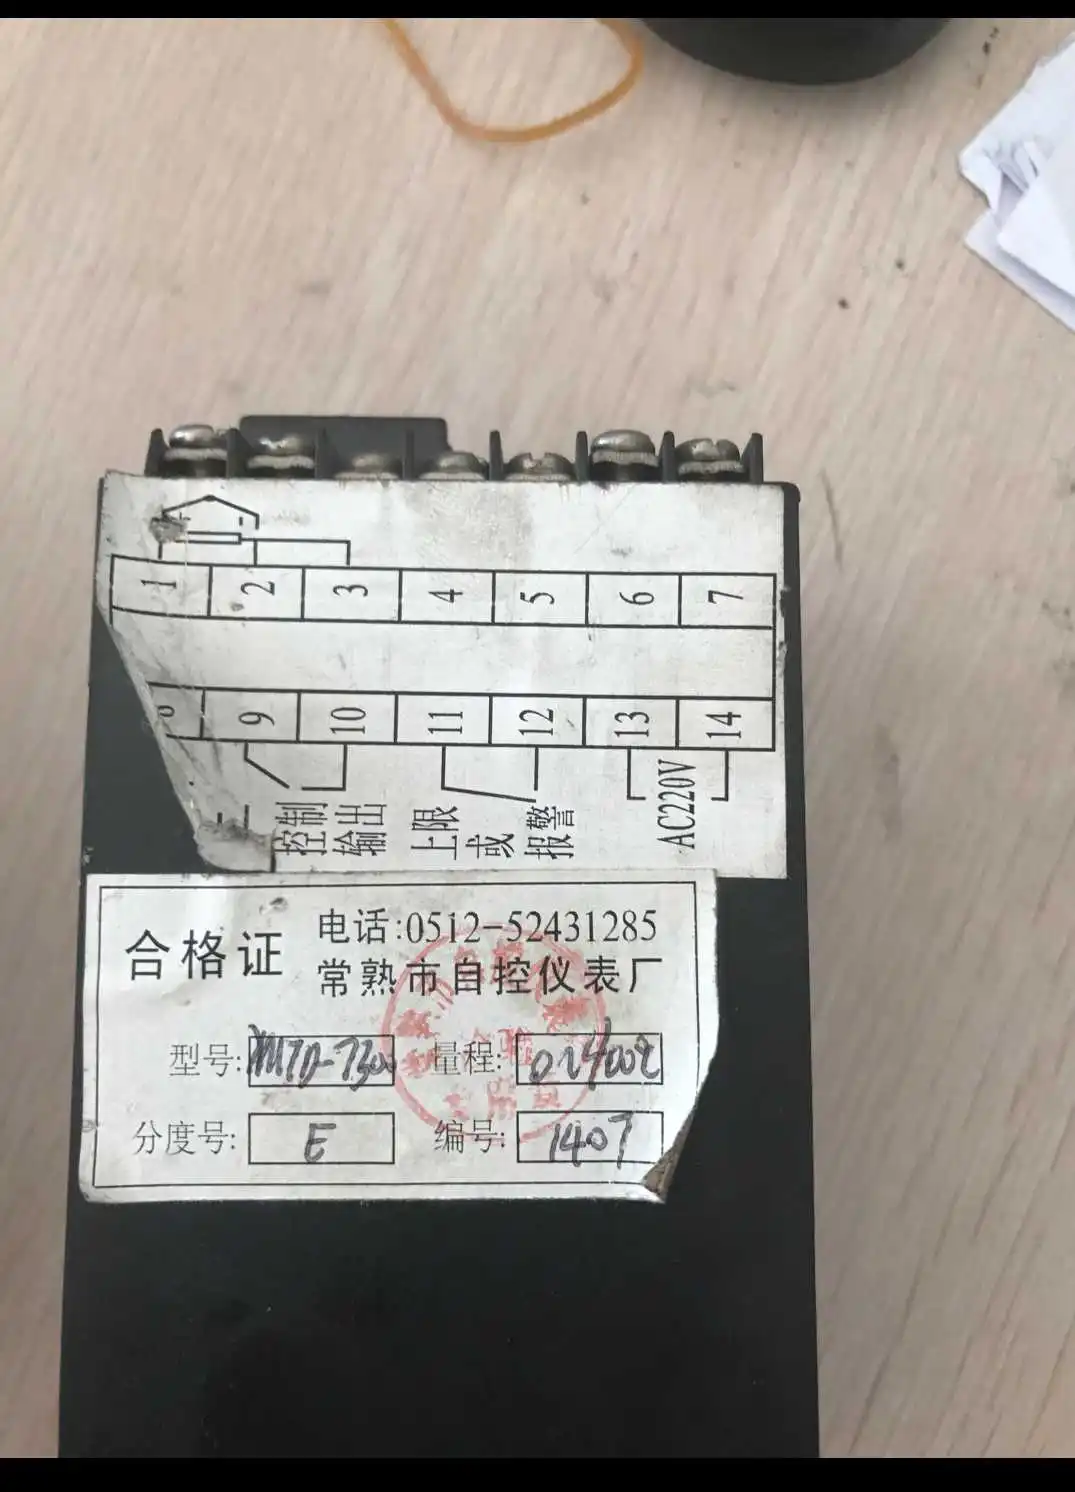 1 2 3 4 5 6 7
8 9 10 11 12 13 14
控制输出
上限或报警
AC220V
合格证
电话:0512-52431285
常熟市自控仪表厂
型号: XMTD-7300
量程: 0~400℃
分度号: E
编号: 1407